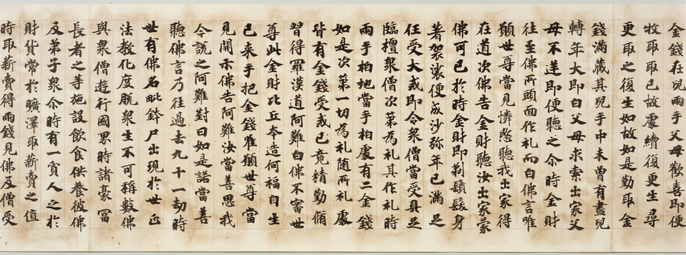 金錢在兒兩手父母歡喜即便
收取取已故處續復更生尋
更取之復生如故如是勤取金
錢滿藏其兒手中未曾有盡兒
轉年大即白父母求索出家父
母不逆即便聽之尒時金財
往至佛所頭面作礼而白佛言唯
願世尊當見憐愍聽我出家得
在道次佛告金財聽汝出家蒙
佛可已於時金財即剃鬚髮身
著袈裟便成沙弥年已滿足
任受大戒即令衆僧當受具足
臨壇衆僧次第為礼其作礼時
兩手拍地當手拍處有二金錢
如是次第一切為礼隨所礼處
皆有金錢受戒已竟精勤脩
習得羅漢道阿難白佛不審世
尊此金財比丘本造何福自生
已來手把金錢唯願世尊當
見開示佛告阿難汝當善思我
今說之阿難對曰如是諾當善
聽佛言乃往過去九十一劫時
世有佛名毗鉢尸出現於世正
法教化度脫衆生不可稱數佛
與衆僧遊行國界時諸豪富
長者之等施設飲食供養彼佛
及弟子衆尒時有一貧人乏於
財貨常於曠澤取薪賣之值
時取薪賣得兩錢見佛及僧受